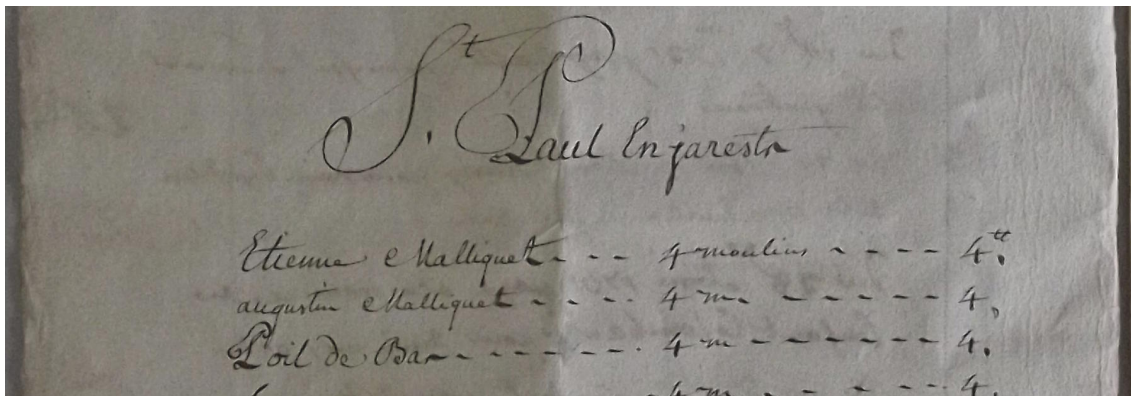 St. Paul Enjarest
Etienne Malliquet - - - 4 moulins - - - - 4tt.
augustin Malliquet - - - - 4 m. - - - - - - 4,
Poil de Bar - - - - - - - . 4 m - - - - - - 4.
4 m - - - - - 4.